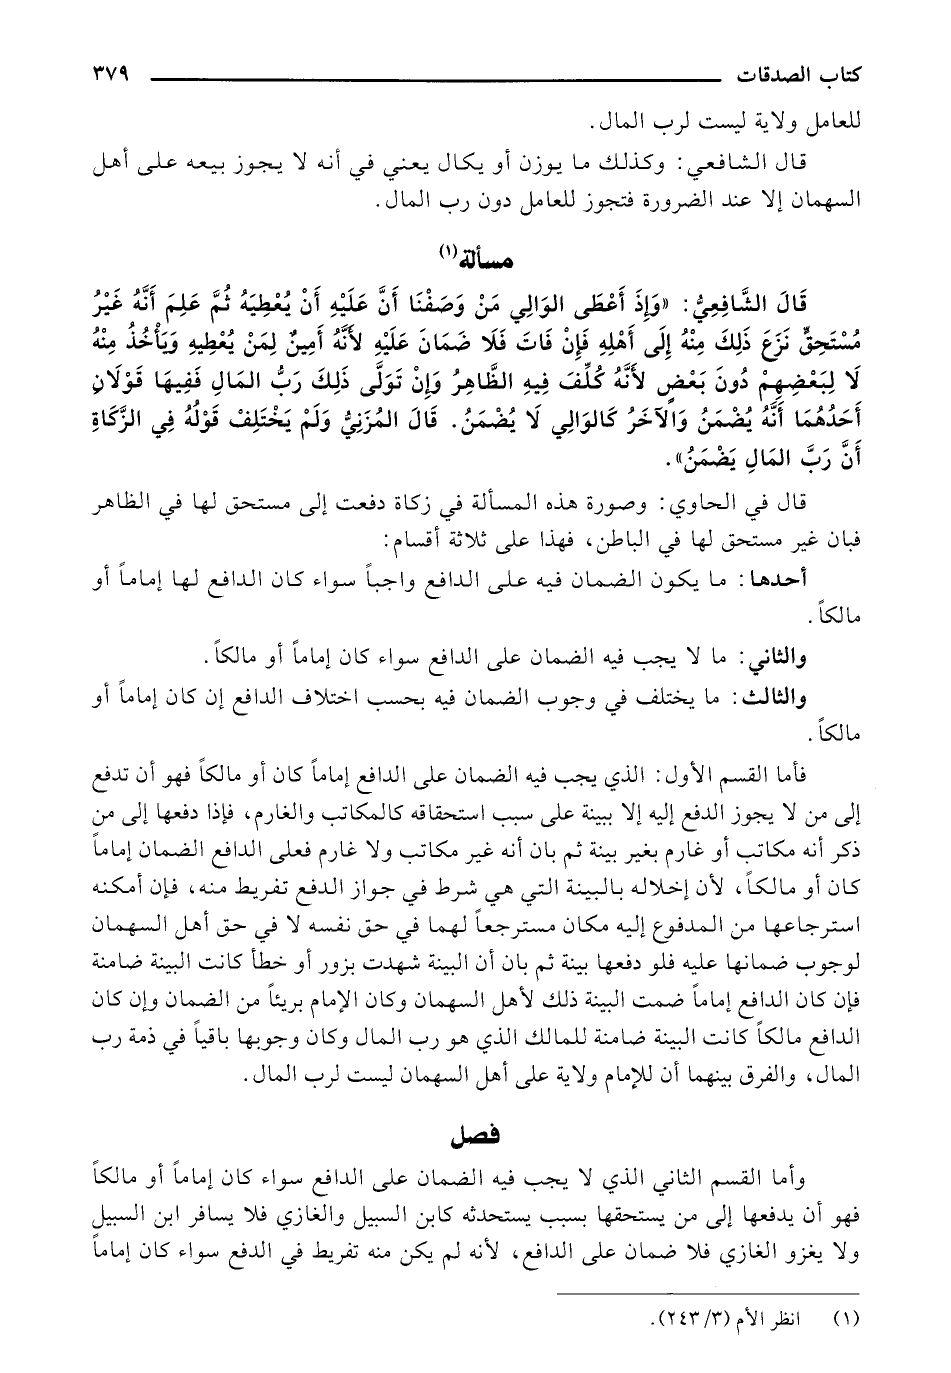 كتاب الصدقات ٣٧٩
للعامل ولاية ليست لرب المال.
قال الشافعي: وكذلك ما يوزن أو يكال يعني في أنه لا يجوز بيعه على أهل
السهمان إلا عند الضرورة فتجوز للعامل دون رب المال.
مسألة(١)
قَالَ الشَّافِعِيُّ: «وَإِذَ أَعْطَى الوَالِي مَنْ وَصَفْنَا أَنَّ عَلَيْهِ أَنْ يُعْطِيَهُ ثُمَّ عَلِمَ أَنَّهُ غَيْرُ
مُسْتَحِقٍّ نَزَعَ ذَلِكَ مِنْهُ إِلَى أَهْلِهِ فَإِنْ فَاتَ فَلَا ضَمَانَ عَلَيْهِ لأَنَّهُ أَمِينٌ لِمَنْ يُعْطِيهِ وَيَأْخُذُ مِنْهُ
لَا لِبَعْضِهِمْ دُونَ بَعْضٍ لأَنَّهُ كُلِّفَ فِيهِ الظَّاهِرُ وَإِنْ تَوَلَّى ذَلِكَ رَبُّ المَالِ فَفِيهَا قَوْلَانِ
أَحَدُهُمَا أَنَّهُ يُضْمَنُ وَالآخَرُ كَالوَالِي لَا يُضْمَنُ. قَالَ المُزَنِيُّ وَلَمْ يَخْتَلِفْ قَوْلُهُ فِي الزَّكَاةِ
أَنَّ رَبَّ المَالِ يَضْمَنُ».
قال في الحاوي: وصورة هذه المسألة في زكاة دفعت إلى مستحق لها في الظاهر
فبان غير مستحق لها في الباطن، فهذا على ثلاثة أقسام:
أحدها: ما يكون الضمان فيه على الدافع واجباً سواء كان الدافع لها إماماً أو
مالكاً.
والثاني: ما لا يجب فيه الضمان على الدافع سواء كان إماماً أو مالكاً.
والثالث: ما يختلف في وجوب الضمان فيه بحسب اختلاف الدافع إن كان إماماً أو
مالكاً.
فأما القسم الأول: الذي يجب فيه الضمان على الدافع إماماً كان أو مالكاً فهو أن تدفع
إلى من لا يجوز الدفع إليه إلا ببينة على سبب استحقاقه كالمكاتب والغارم، فإذا دفعها إلى من
ذكر أنه مكاتب أو غارم بغير بينة ثم بان أنه غير مكاتب ولا غارم فعلى الدافع الضمان إماماً
كان أو مالكاً، لأن إخلاله بالبينة التي هي شرط في جواز الدفع تفريط منه، فإن أمكنه
استرجاعها من المدفوع إليه مكان مسترجعاً لهما في حق نفسه لا في حق أهل السهمان
لوجوب ضمانها عليه فلو دفعها بينة ثم بان أن البينة شهدت بزور أو خطأ كانت البينة ضامنة
فإن كان الدافع إماماً ضمت البينة ذلك لأهل السهمان وكان الإمام بريئاً من الضمان وإن كان
الدافع مالكاً كانت البينة ضامنة للمالك الذي هو رب المال وكان وجوبها باقياً في ذمة رب
المال، والفرق بينهما أن للإمام ولاية على أهل السهمان ليست لرب المال.
فصل
وأما القسم الثاني الذي لا يجب فيه الضمان على الدافع سواء كان إماماً أو مالكاً
فهو أن يدفعها إلى من يستحقها بسبب يستحدثه كابن السبيل والغازي فلا يسافر ابن السبيل
ولا يغزو الغازي فلا ضمان على الدافع، لأنه لم يكن منه تفريط في الدفع سواء كان إماماً
(١) انظر الأم (٣/ ٢٤٣).